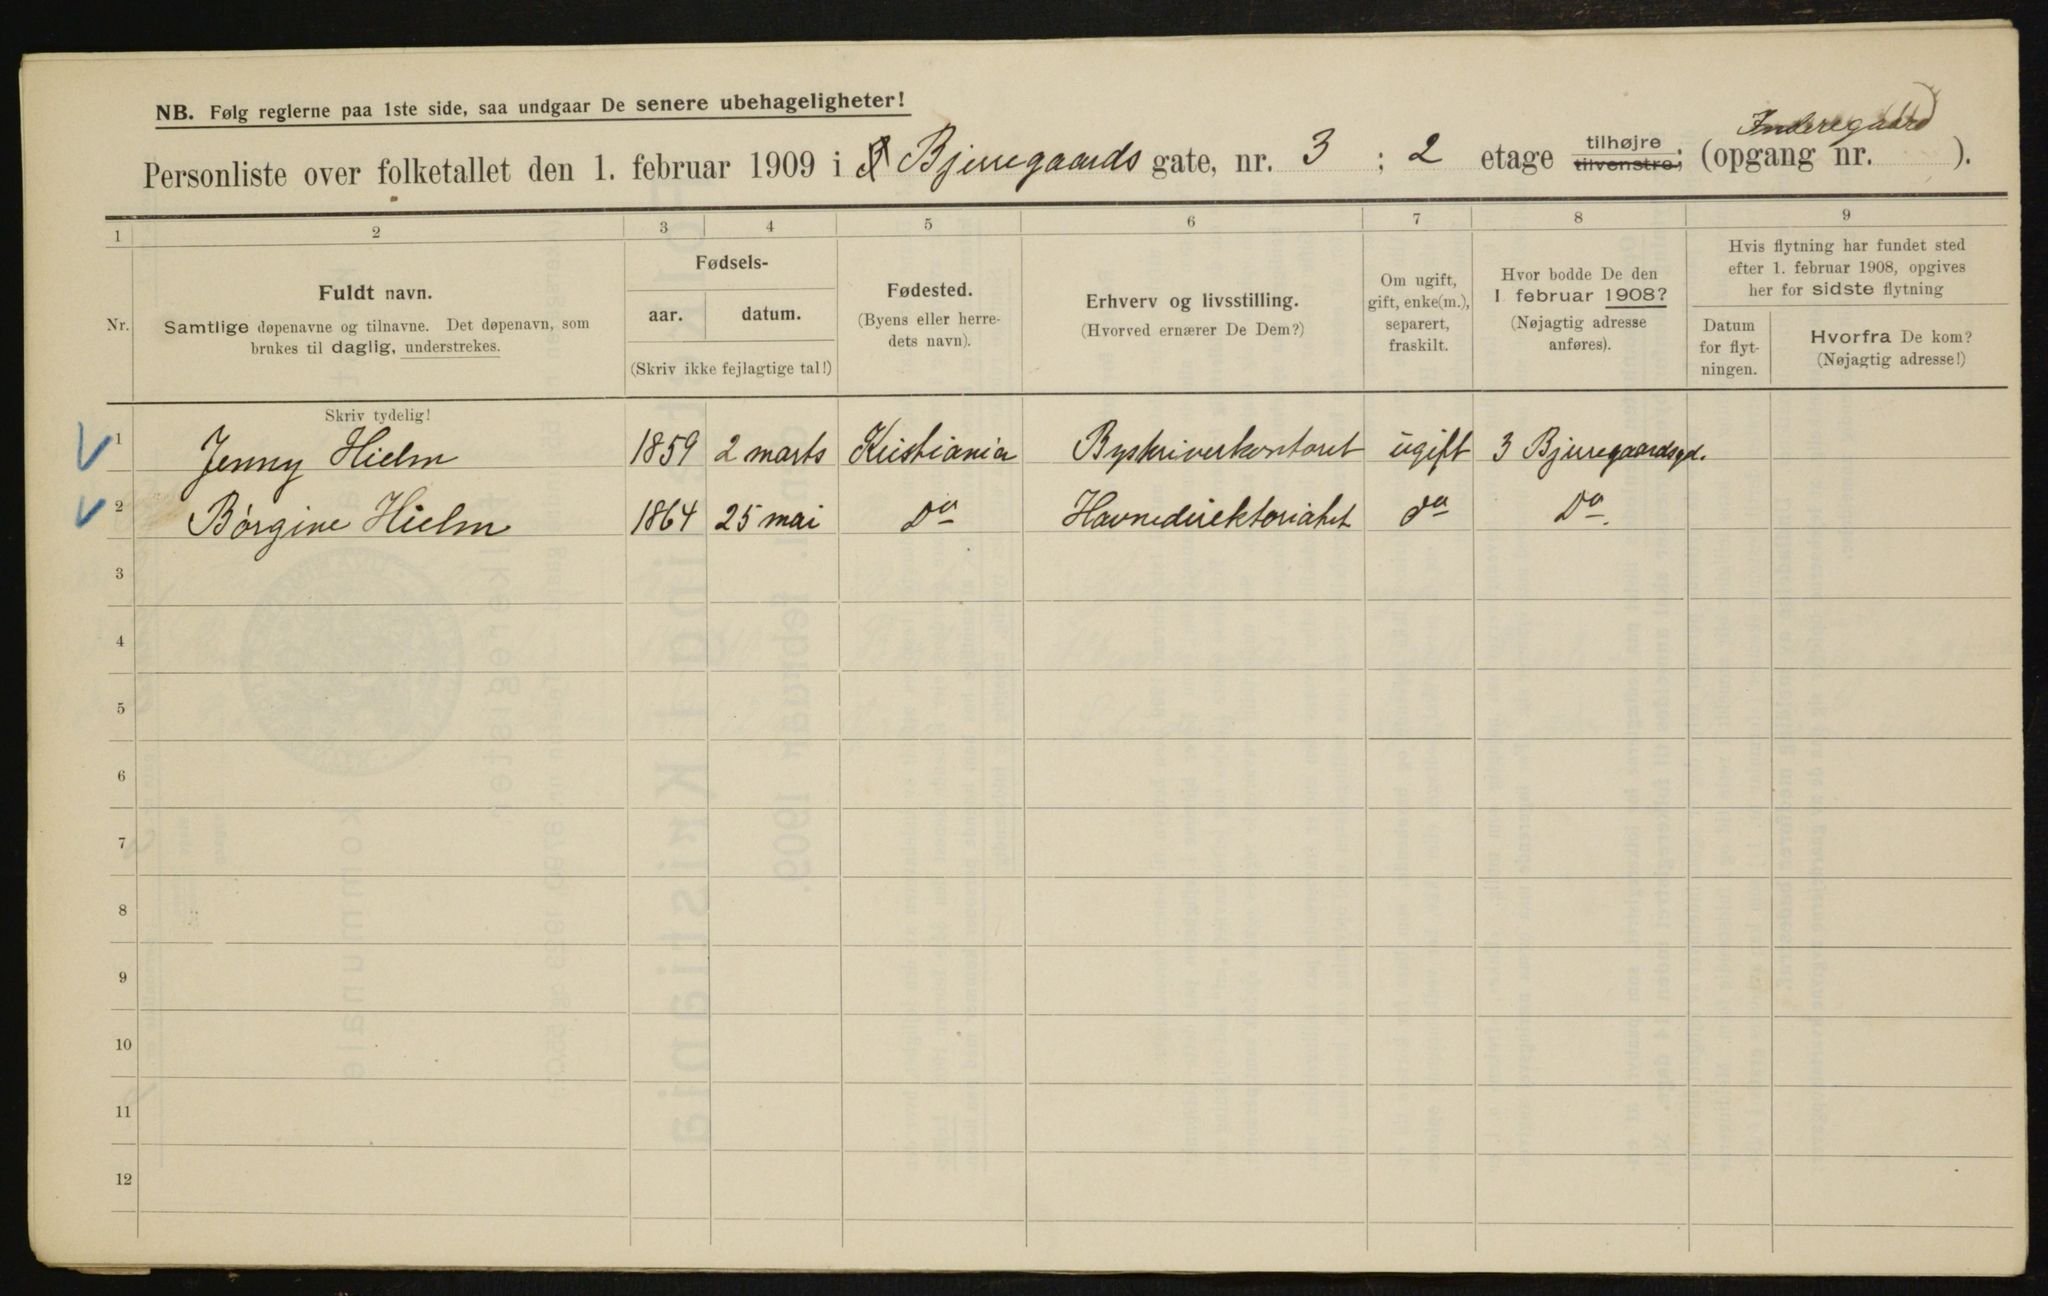 NB. Følg reglerne paa 1ste side, saa undgaar De senere ubehageligheter!
Inderegaard)
Personliste over folketallet den 1. februar 1909 i Bjerregaards gate, nr. 3 ; 2 etage tilhøjre. tilvenstre; (opgang nr. ).
1 2 3 4 5 6 7 8 9
Nr.
Fuldt navn.
Samtlige døpenavne og tilnavne. Det døpenavn, som
brukes til daglig, understrekes.
Fødsels-
aar. datum.
(Skriv ikke fejlagtige tal!)
Fødested.
(Byens eller herre-
dets navn).
Erhverv og livsstilling.
(Hvorved ernærer De Dem?)
Om ugift,
gift, enke(m.),
separert,
fraskilt.
Hvor bodde De den
1 februar 1908?
(Nøjagtig adresse
anføres).
Hvis flytning har fundet sted
efter 1. februar 1908, opgives
her for sidste flytning
Datum
for flyt-
ningen.
Hvorfra De kom?
(Nøjagtig adresse!)
Skriv tydelig!
1 Jenny Hielm 1859 2 marts Kristiania Byskriverkontoret ugift 3 Bjerregaardsgd.
2 Børgine Hielm 1864 25 mai Do Havnedirektoriatet do Do.
3
4
5
6
7
8
9
10
11
12